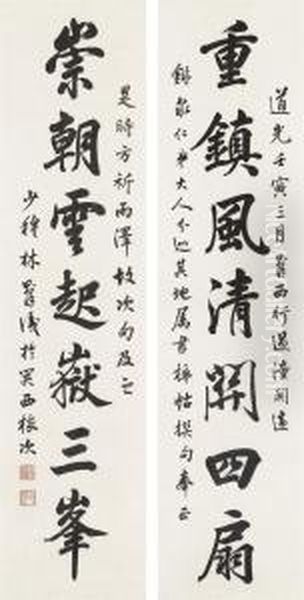 重鎮風清關四扇
道光壬寅三月則徐西行過潼關適
泉仁弟大人分巡其地屬書楹帖撰句奉正
崇朝雲起嶽三峯
是時方祈雨澤故次句及之
少穆林則徐識於關西旅次